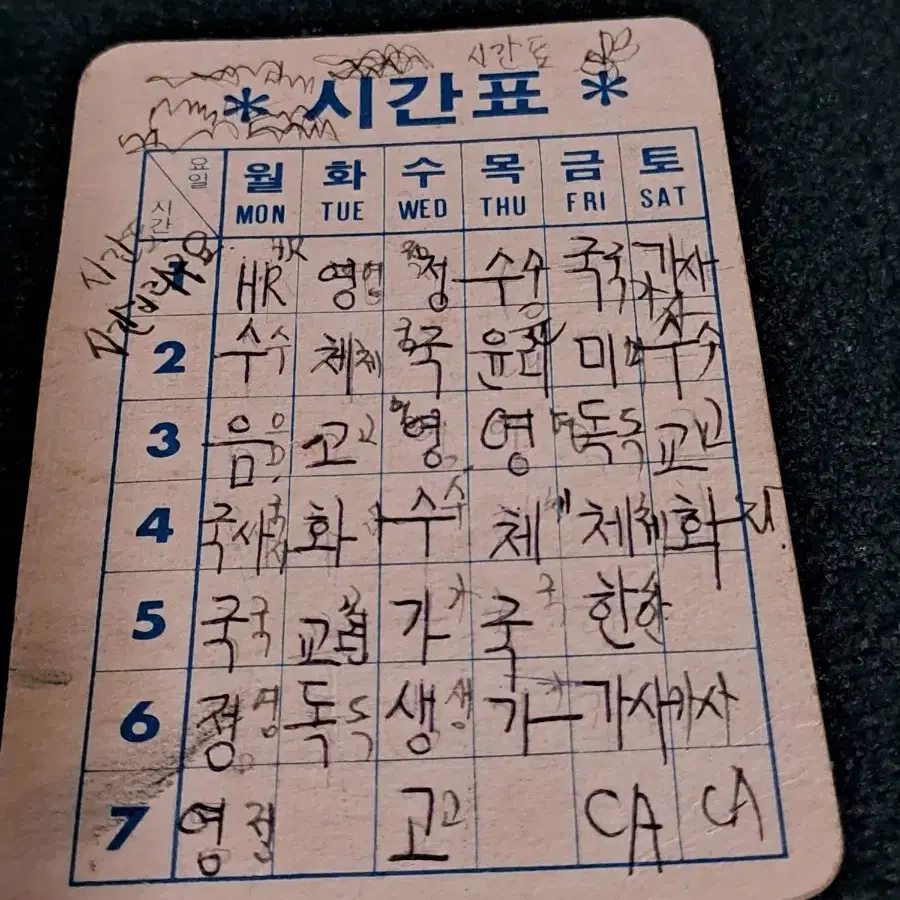 시간표
* 시간표 *
요일 월 화 수 목 금 토
시간 MON TUE WED THU FRI SAT
1 HR HR 영 영 정 수수 국국 가사
2 수수 체체 국국 윤 미미 수수
3 음음 고고 영 영 독독 교교
4 국사 화 수수 체체 체체 화
5 국국 교 가가 국국 한한
6 정 독독 생생 가가 가사 가사
7 영 고고 CA CA